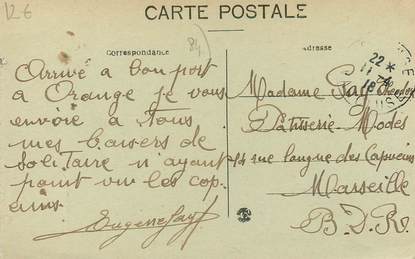 126
CARTE POSTALE
84
Correspondance
Adresse
22 *
11 - 4
18
Arrivé a bon port
a Orange je vous
envoie a Tous
mes baisers de
Solitaire n'ayant
point vu les cop
ains
EugeneGay
Madame Gay
Patisserie Modes
14 rue longue des Capucins
Marseille
B.D.R.